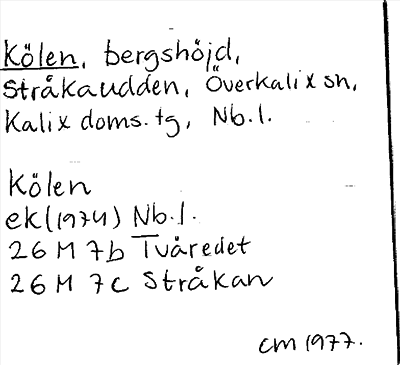 Kölen, bergshöjd,
Stråkaudden, Överkalix sn,
Kalix doms. tg, Nb.l.
Kölen
ek(1974) Nb.l.
26 M 7b Tvåredet
26 M 7c Stråkan
CM 1977.